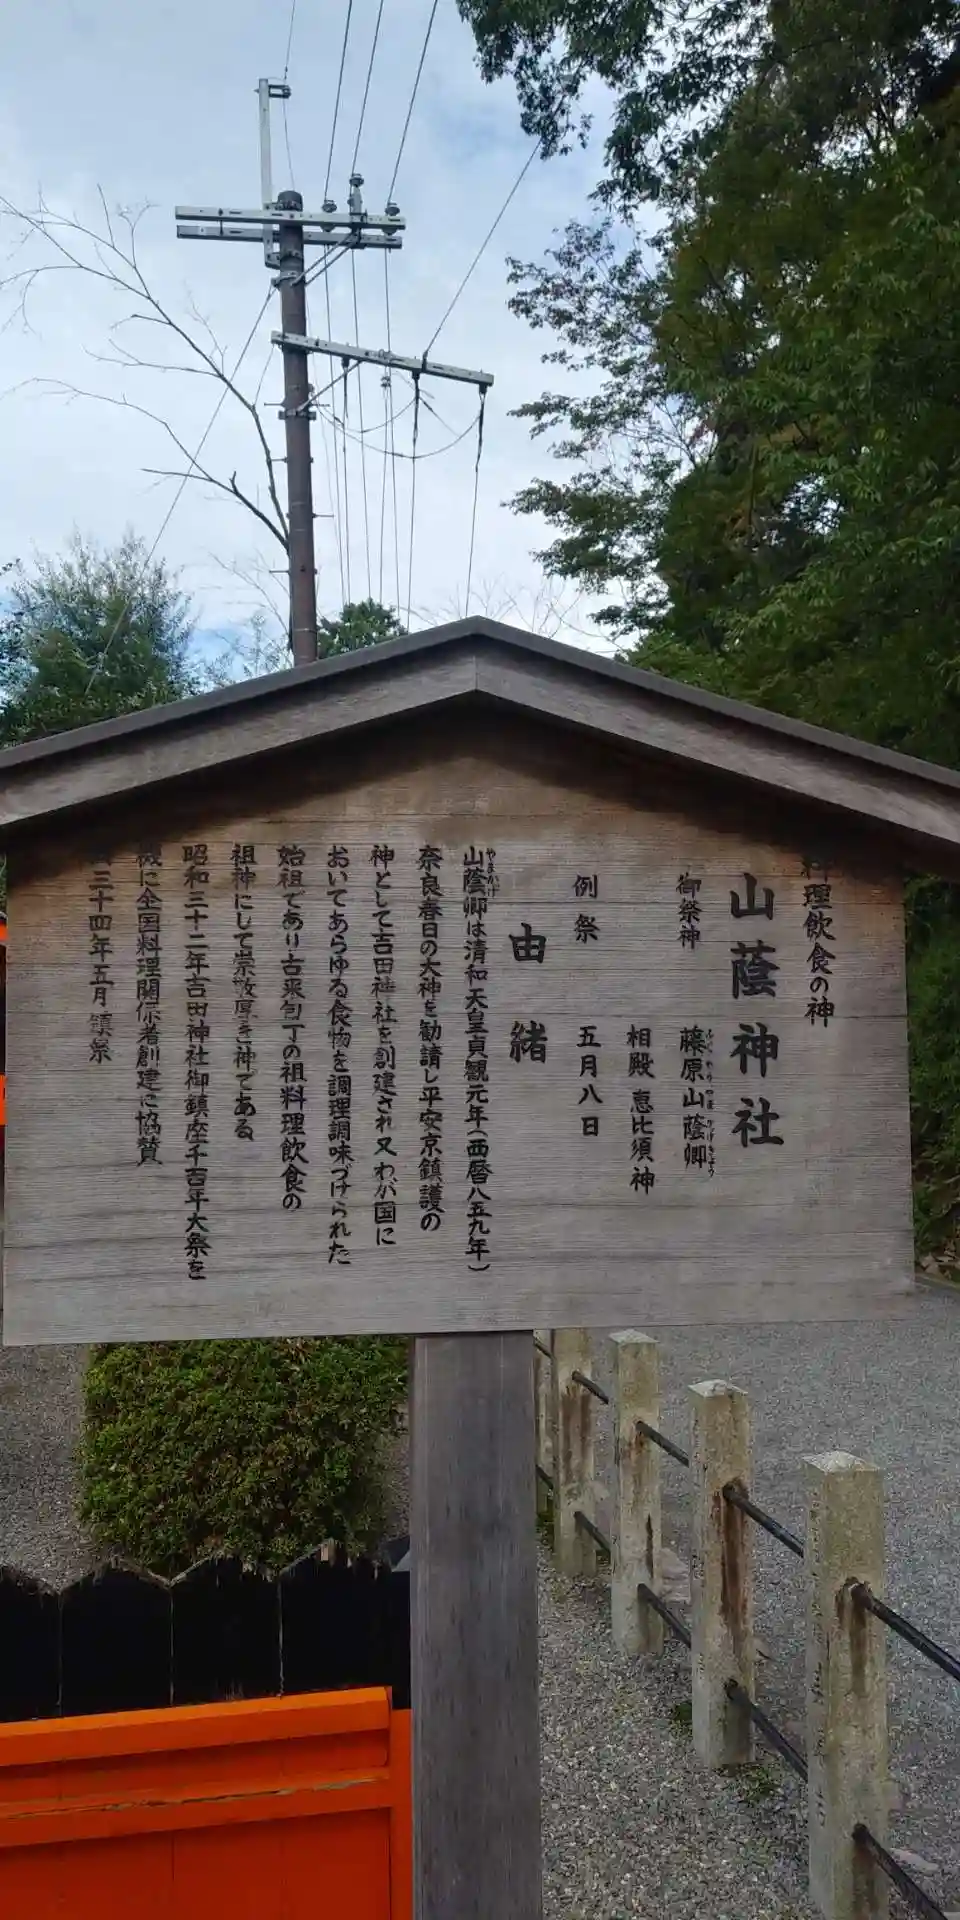 料理飲食の神
山蔭神社
御祭神 藤原山蔭卿
相殿 恵比須神
例祭 五月八日
由緒
山蔭卿は清和天皇貞観元年(西暦八五九年)
やまかげ
奈良春日の大神を勧請し平安京鎮護の
神として吉田神社を創建され又わが国に
おいてあらゆる食物を調理調味づけられた
始祖であり古来包丁の祖料理飲食の
祖神にして崇敬厚き神である
昭和三十二年吉田神社御鎮座千百年大祭を
機に全国料理関係者創建に協賛
三十四年五月鎮祭